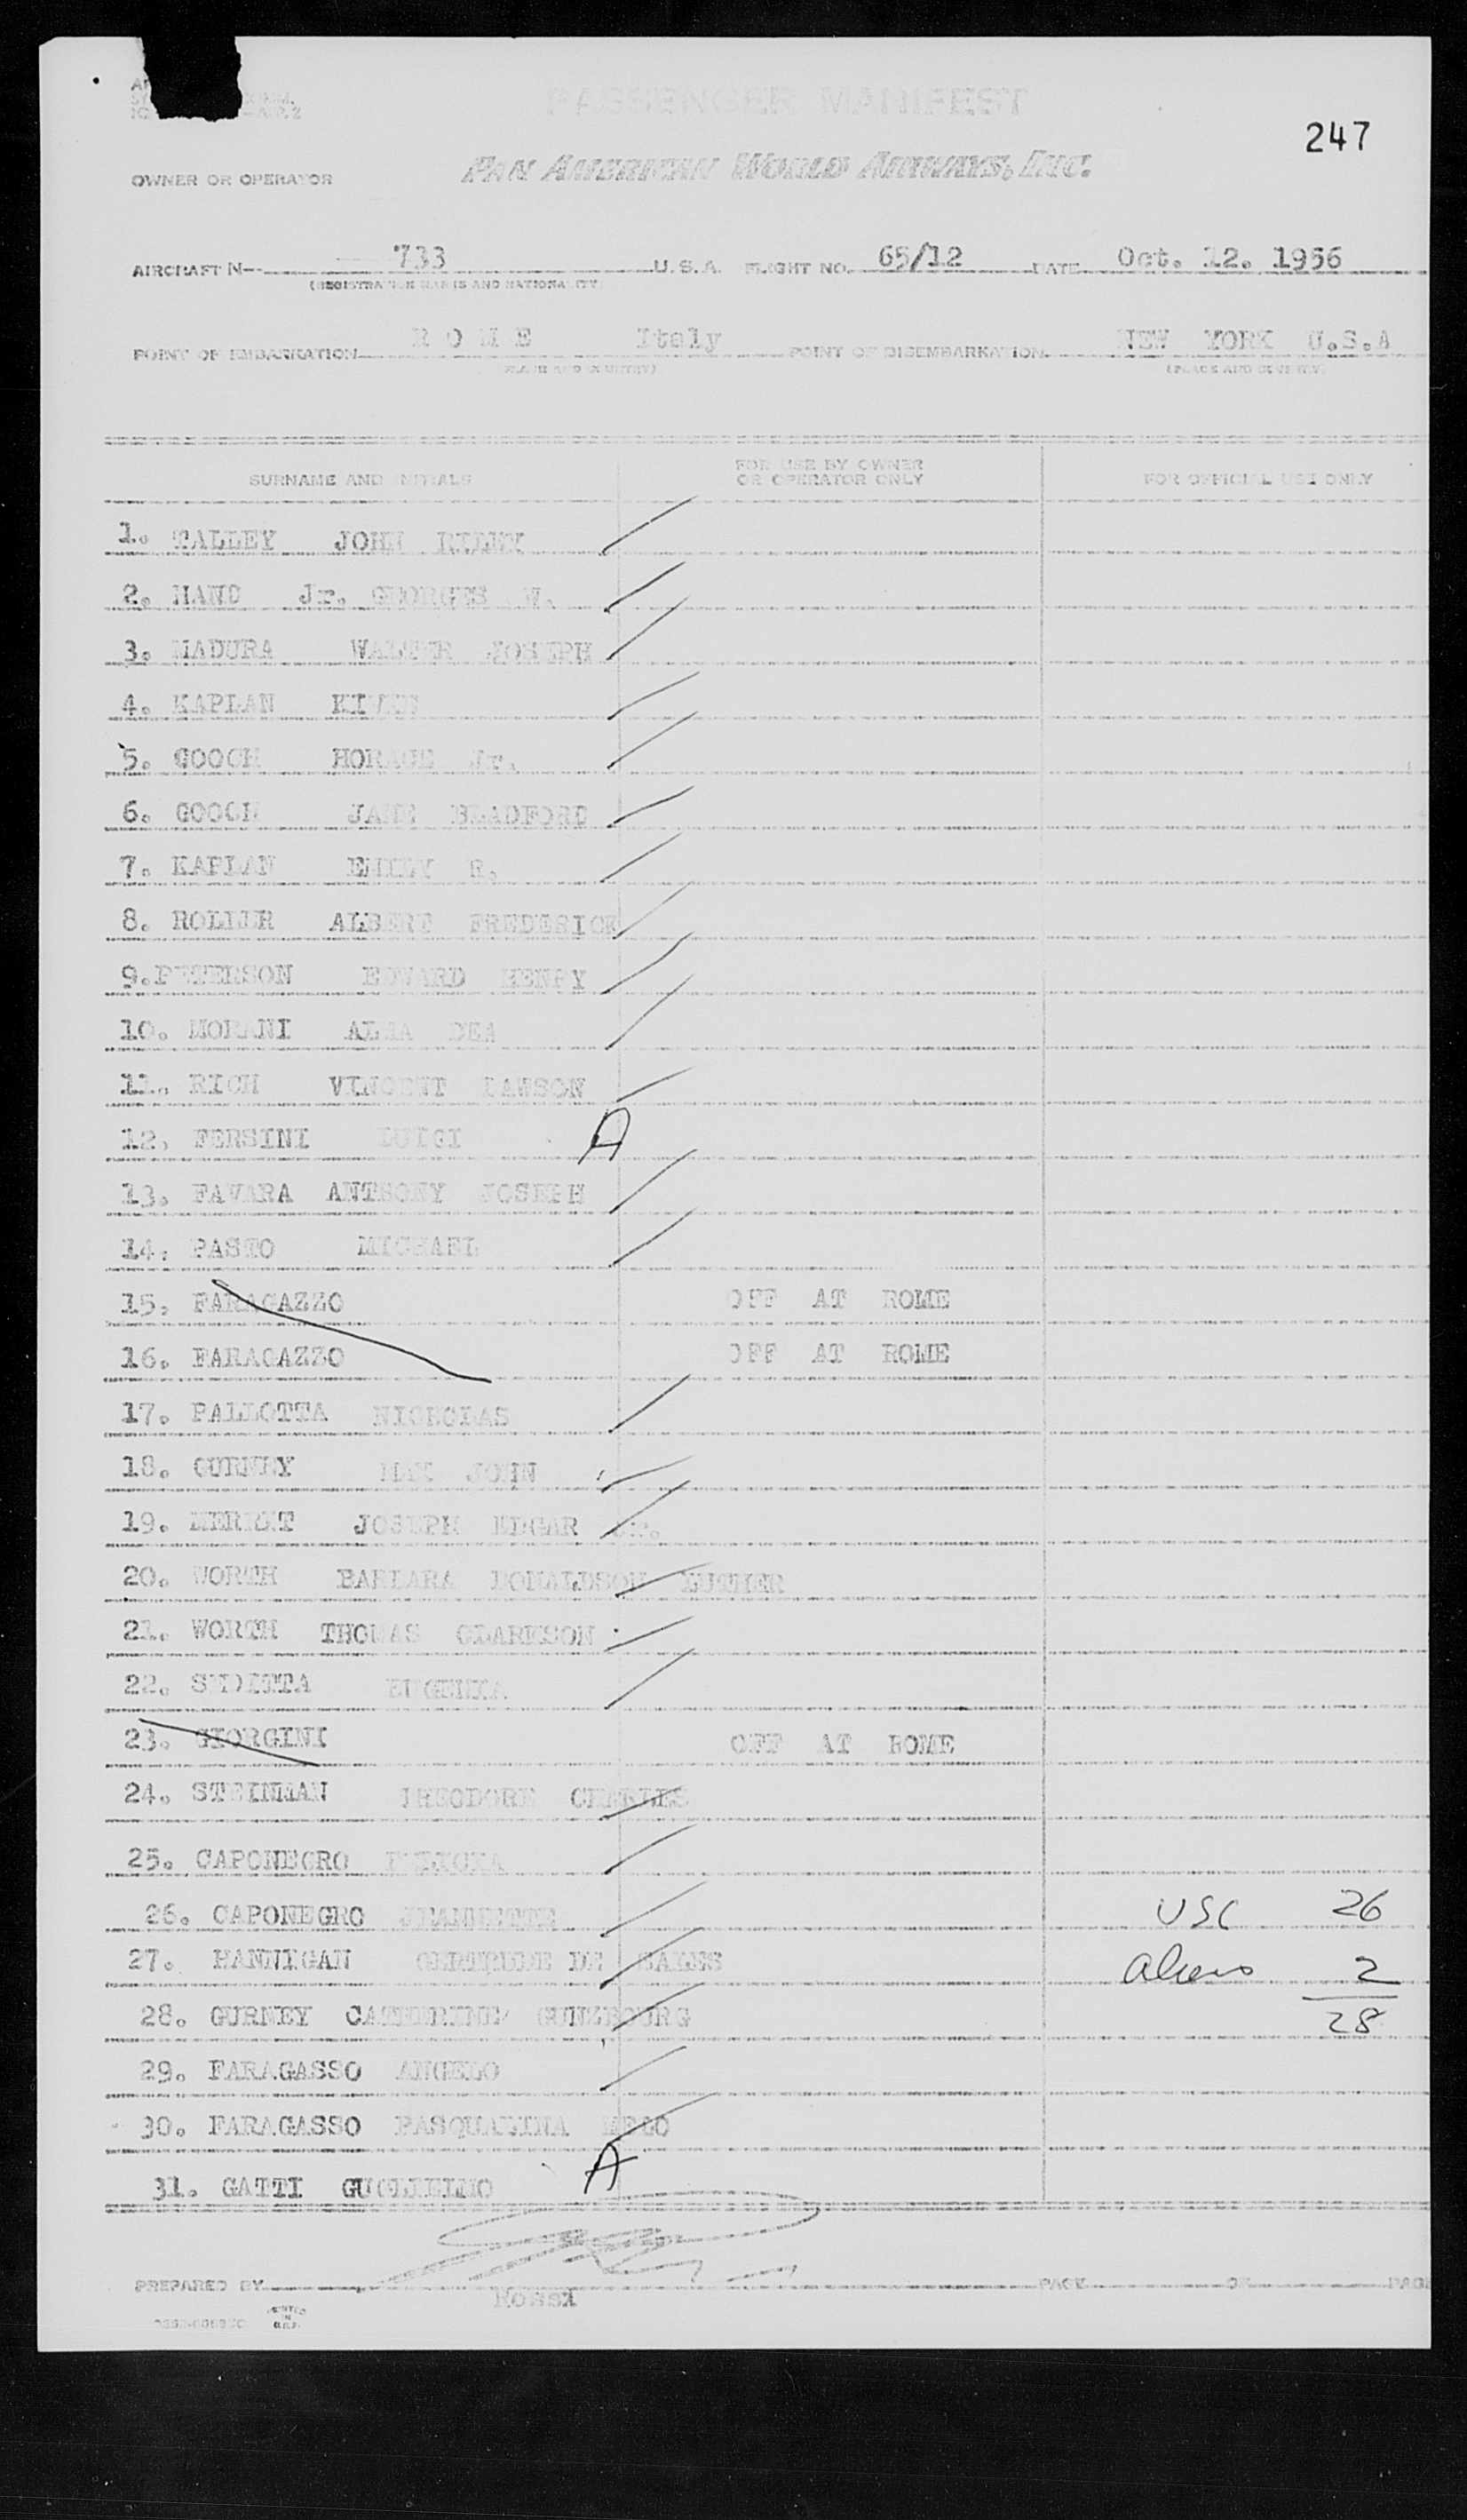 PASSENGER MANIFEST
247
OWNER OR OPERATOR PAN AMERICAN WORLD AIRWAYS, INC.
AIRCRAFT N-- 733 U.S.A. FLIGHT NO. 65/12 DATE Oct. 12. 1956
(REGISTRATION MARKS AND NATIONALITY)
POINT OF EMBARKATION ROME Italy POINT OF DISEMBARKATION NEW YORK U.S.A
(PLACE AND COUNTRY) (PLACE AND COUNTRY)
SURNAME AND INITIALS FOR USE BY OWNER OR OPERATOR ONLY FOR OFFICIAL USE ONLY
1. TALLEY JOHN RILEY
2. HAND Jr. GEORGES W.
3. MADURA WALTER JOSEPH
4. KAPLAN
5. GOOCH HORACE Jr.
6. GOOCH JANE BRADFORD
7. KAPLAN EMILY R.
8. ALBERT FREDERICK
9. PETERSON EDWARD HENRY
10. MORANI ALMA DEA
11. RICH VINCENT LAWSON
12. FERSINI LUIGI A
13. FAVARA ANTHONY JOSEPH
14. PASTO MICHAEL
15. FARAGAZZO OFF AT ROME
16. FARAGAZZO OFF AT ROME
17. PALLOTTA NICHOLAS
18. GURNEY MAX JOHN
19. JOSEPH EDGAR Jr.
20. WORTH BARBARA DONALDSON LUTHER
21. WORTH THOMAS CLARKSON
22. EUGENIA
23. GIORGINI OFF AT ROME
24. STEINMAN THEODORE CHARLES
25. CAPONEGRO
26. CAPONEGRO JEANNETTE USC 26
27. HANNIGAN GERTRUDE DE SALES Aliens 2
28. GURNEY CATHERINE GUNZBOURG 28
29. FARAGASSO ANGELO
30. FARAGASSO PASQUALINA MEGO
31. GATTI GUGLIELMO A
PREPARED BY PAGE OF PAGE
PRINTED IN U.S.A.